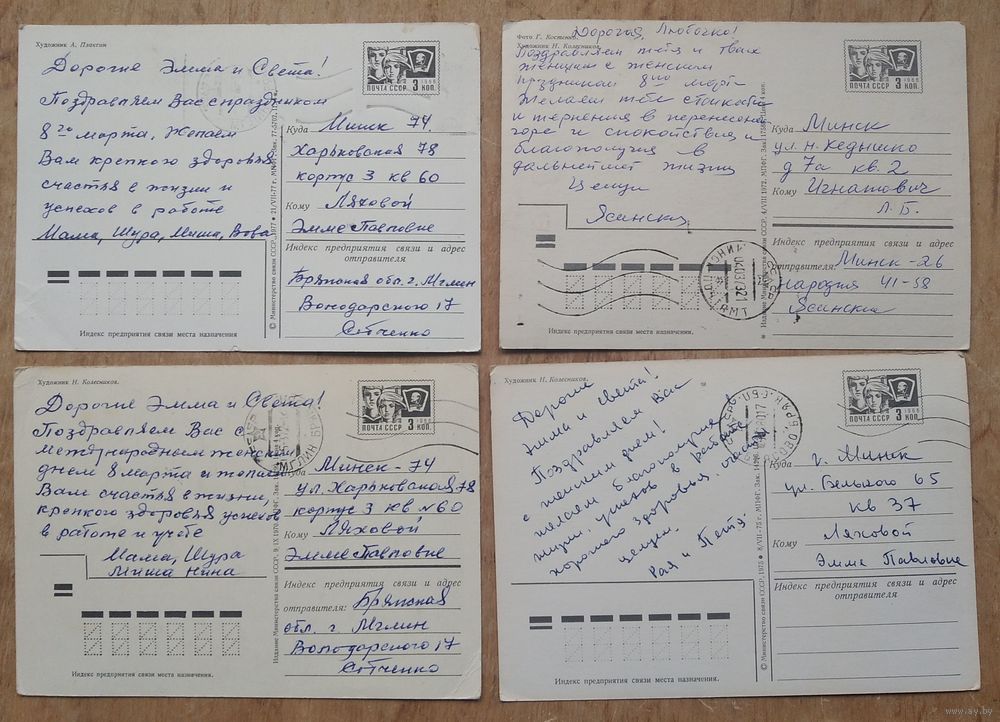 Художник А. Плаксин
Дорогие Эмма и Света!
Поздравляем Вас с праздником
8го марта. Желаем
Вам крепкого здоровья
счастья в жизни и
успехов в работе
Мама, Шура, Миша, Вова
ПОЧТА СССР 3 КОП.
Куда Минск 74.
Харьковская 78
корпус 3 кв 60
Кому Ляховой
Эмме Павловне
Индекс предприятия связи и адрес
отправителя
Брянская обл. г. Мглин
Володарского 17
Индекс предприятия связи места назначения
© Министерство связи СССР, 1977
Фото Г. Костенко
Художник Н. Колесников
Дорогая, Любочка!
Поздравляем тебя и твоих
женщин с женским
праздником 8ого март
Желаем тебе стойкости
и терпения в перенесении
горе и спокойствия и
благополучия в
дальнейшей жизни
Целуи
Ясинския
ПОЧТА СССР 1966 3 КОП.
Куда Минск
ул. Н. Кедышко
д 7а кв. 2
Кому Игнатович
Л. Б.
Индекс предприятия связи и адрес
отправителя: Минск-26
народная 41-58
Ясинския
Индекс предприятия связи места назначения.
Художник Н. Колесников.
Дорогие Эмма и Света!
Поздравляем Вас с
международным женским
днем 8 марта и желаем
Вам счастья в жизни,
крепкого здоровья успехов
в работе и учебе
Мама, Шура
Миша Нина
ПОЧТА СССР 1966 3 КОП.
Куда Минск-74
ул. Харьковская 78
корпус 3 кв N60
Кому Ляховой
Эмме Павловне
Индекс предприятия связи и адрес
отправителя: Брянская
обл. г. Мглин
Володарского 17
Индекс предприятия связи места назначения.
Художник Н. Колесников.
Дорогие
Эмма и Света!
Поздравляем Вас
с женским днем!
желаем благополучия в
жизни успехов в работе
хорошего здоровья
целуем.
Рая и Петя.
ПОЧТА СССР 1966 3 КОП.
Куда г. Минск
ул. Бельского 65
кв 37
Кому Ляховой
Эмме Павловне
Индекс предприятия связи и адрес
отправителя
Индекс предприятия связи места назначения.
© Министерство связи СССР, 1975
www.ay.by